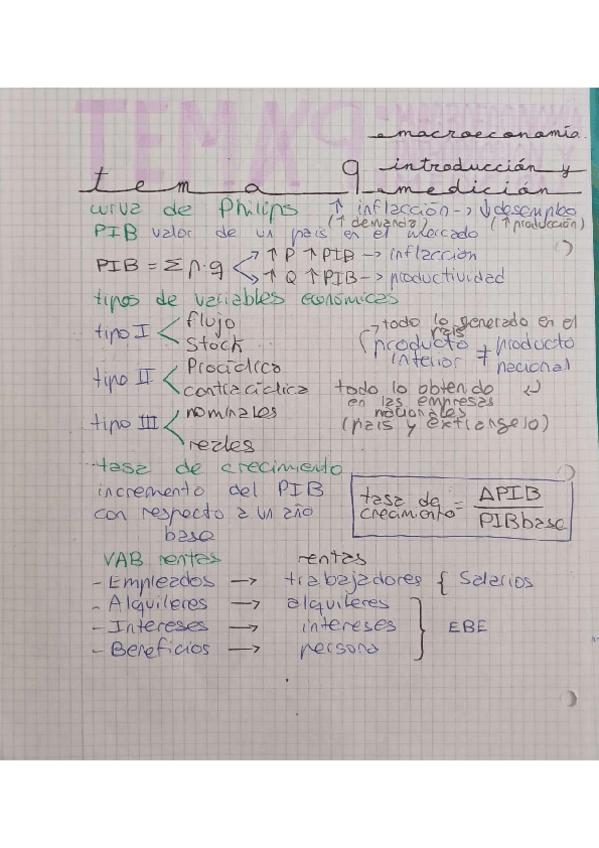 macroeconomía.
tema 9 introducción y
medición
curva de Philips ↑ inflacción -> ↓ desempleo
(↑ demanda) (↑ producción)
PIB valor de un pais en el mercado
PIB = Σ p·q
↑ P ↑ PIB -> inflacción
↑ Q ↑ PIB -> productividad
tipos de variables económicas
tipo I < flujo
stock
todo lo generado en el
pais
producto interior ≠ producto nacional
tipo II < Prociclico
contraciclica
todo lo obtenido
en las empresas
nacionales
(pais y extranjero)
tipo III < nominales
reales
tasa de crecimiento
incremento del PIB
con respecto a un año
base
tasa de crecimiento = ΔPIB / PIB base
VAB rentas rentas
- Empleados -> trabajadores { Salarios
- Alquileres -> alquileres
- Intereses -> intereses } EBE
- Beneficios -> persona